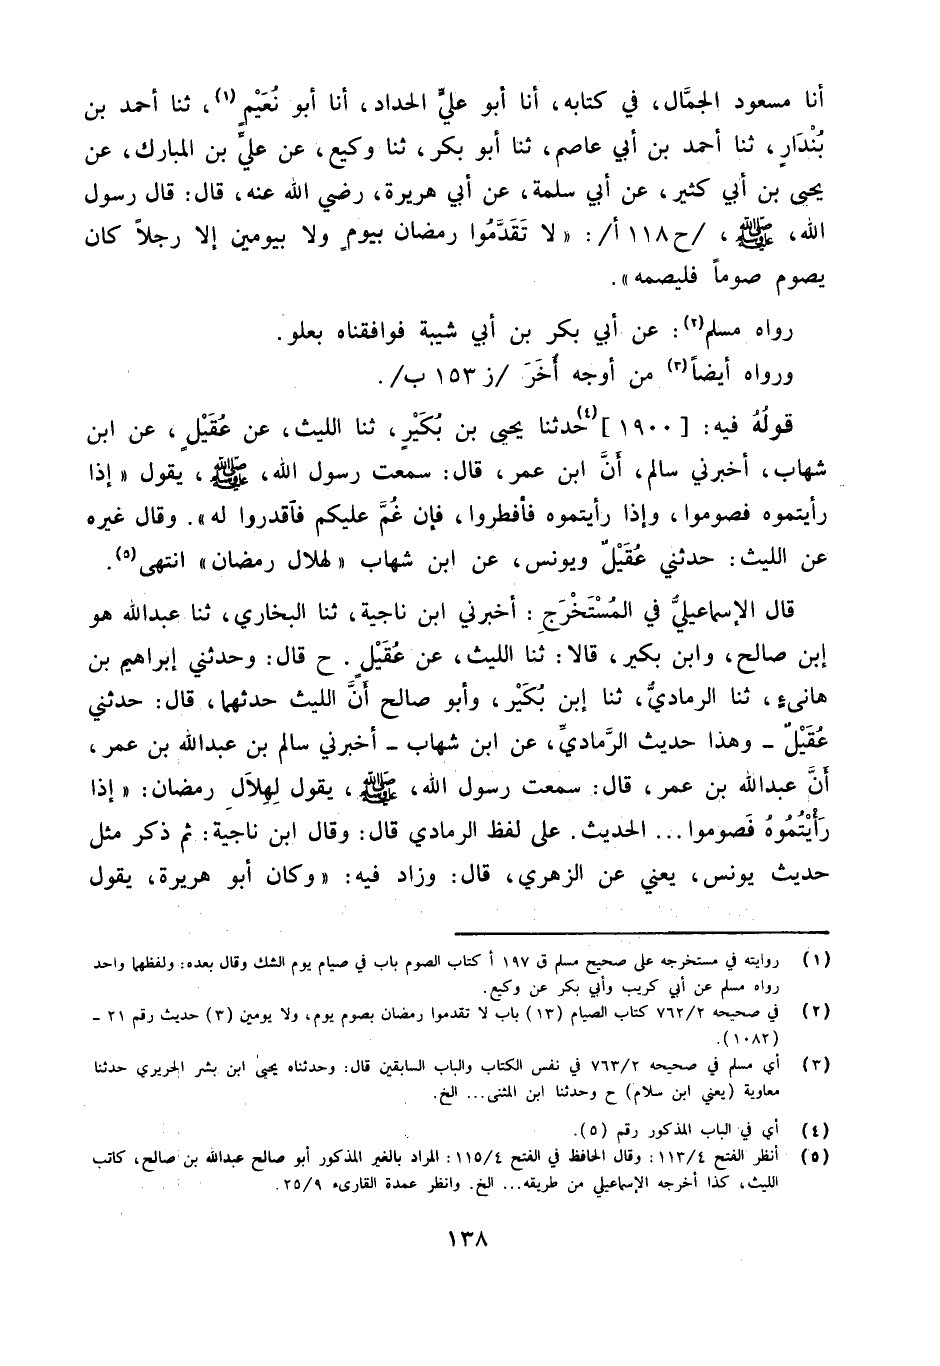 أنا مسعود الجمَّال، في كتابه، أنا أبو عليٍّ الحداد، أنا أبو نُعَيْمٍ(١)، ثنا أحمد بن
بُنْدَارٍ، ثنا أحمد بن أبي عاصم، ثنا أبو بكر، ثنا وكيع، عن عليٍّ بن المبارك، عن
يحيى بن أبي كثير، عن أبي سلمة، عن أبي هريرة، رضي الله عنه، قال: قال رسول
الله، ﷺ، /ح ١١٨ أ/: « لا تَقَدَّمُوا رمضان بيومٍ ولا بيومين إلا رجلاً كان
يصوم صوماً فليصمه».
رواه مسلم(٢): عن أبي بكر بن أبي شيبة فوافقناه بعلو.
ورواه أيضاً(٣) من أوجه أُخَرَ /ز ١٥٣ ب/.
قولُهُ فيه: [١٩٠٠](٤)حدثنا يحيى بن بُكَيْرٍ، ثنا الليث، عن عُقَيْلٍ، عن ابن
شهاب، أخبرني سالم، أَنَّ ابن عمر، قال: سمعت رسول الله، ﷺ، يقول « إذا
رأيتموه فصوموا، وإذا رأيتموه فأفطروا، فإن غُمَّ عليكم فآقدروا له». وقال غيره
عن الليث: حدثني عُقَيْلٌ ويونس، عن ابن شهاب « لهلال رمضان» انتهى(٥).
قال الإسماعيليُّ في المُسْتَخْرَجِ: أخبرني ابن ناجية، ثنا البخاري، ثنا عبدالله هو
إبن صالح، وابن بكير، قالا: ثنا الليث، عن عُقَيْلٍ. ح قال: وحدثني إبراهيم بن
هانىء، ثنا الرماديُّ، ثنا إبن بُكَيْر، وأبو صالح أَنَّ الليث حدثهما، قال: حدثني
عُقَيْلٌ - وهذا حديث الرَّماديِّ، عن ابن شهاب - أخبرني سالم بن عبدالله بن عمر،
أَنَّ عبدالله بن عمر، قال: سمعت رسول الله، ﷺ، يقول لِهِلاَلِ رمضان: « إذا
رَأَيْتُمُوهُ فَصوموا... الحديث. على لفظ الرمادي قال: وقال ابن ناجية: ثم ذكر مثل
حديث يونس، يعني عن الزهري، قال: وزاد فيه: « وكان أبو هريرة، يقول
(١) روايته في مستخرجه على صحيح مسلم ق ١٩٧ أ كتاب الصوم باب في صيام يوم الشك وقال بعده: ولفظهما واحد
رواه مسلم عن أبي كريب وأبي بكر عن وكيع.
(٢) في صحيحه ٧٦٢/٢ كتاب الصيام (١٣) باب لا تقدموا رمضان بصوم يوم، ولا يومين (٣) حديث رقم ٢١ -
(١٠٨٢).
(٣) أي مسلم في صحيحه ٧٦٣/٢ في نفس الكتاب والباب السابقين قال: وحدثناه يحيى ابن بشر الحريري حدثنا
معاوية (يعني ابن سلام) ح وحدثنا ابن المثنى... الخ.
(٤) أي في الباب المذكور رقم (٥).
(٥) أنظر الفتح ١١٣/٤: وقال الحافظ في الفتح ١١٥/٤: المراد بالغير المذكور أبو صالح عبدالله بن صالح، كاتب
الليث، كذا أخرجه الإسماعيلي من طريقه... الخ. وانظر عمدة القارىء ٢٥/٩.
١٣٨